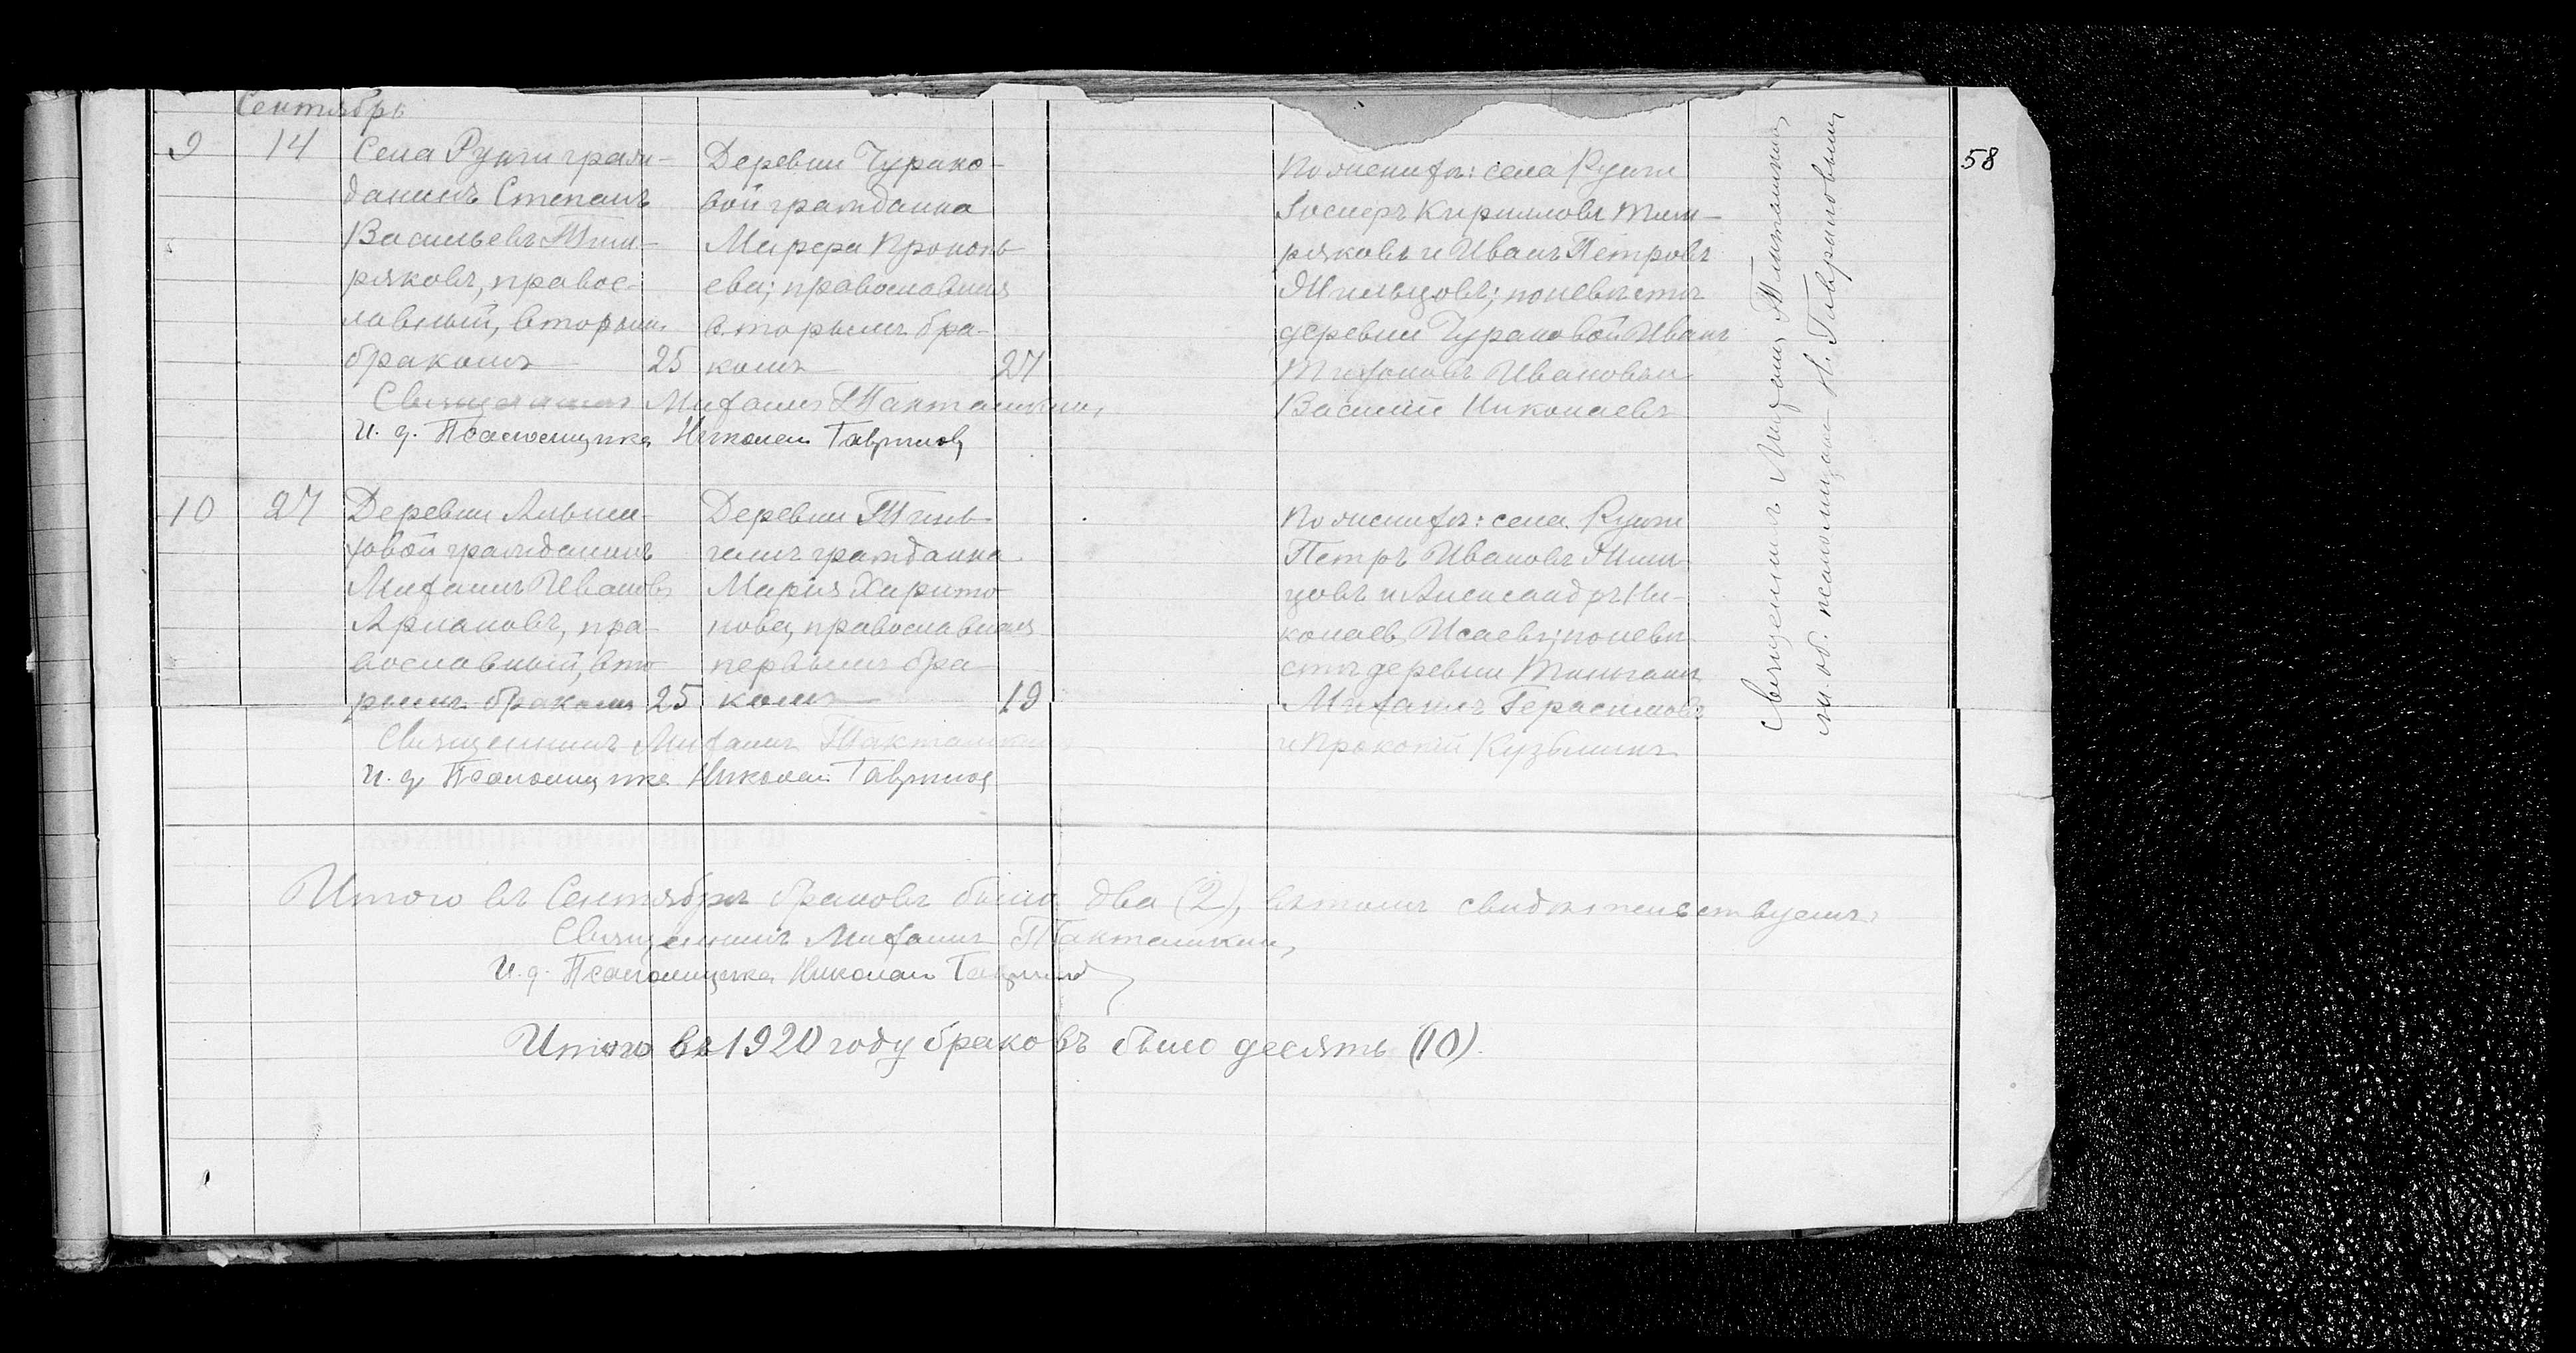 Сентябрь
9 14 Села Рунги граж-
данинъ Степанъ
Васильевъ Тим-
ряковъ, правос-
лавный, вторымъ
бракомъ 25
Деревни Чурако-
вой гражданка
Марѳа Прокопь-
ева; православная
вторымъ бра-
комъ 27
По женихѣ: села Рунги
Іосифъ Кирилловъ Тим-
ряковъ и Иванъ Петровъ
Жильцовъ; по невѣстѣ
деревни Чураковой Иванъ
Тихоновъ Ивановъ и
Василій Николаевъ
Священникъ Михаилъ Такташкинъ,
И. д. Псаломщика Николай Гавриловъ
Священникъ Михаилъ
исп. об. псаломщика Н. Гавриловымъ
58
10 27 Деревни Альши-
ховой гражданинъ
Михаилъ Ивановъ
пра-
вославный, вто-
рымъ бракомъ 25
Деревни Тинь-
гашъ гражданка
Марія Харито-
нова, православная
первымъ бра-
комъ 19
По женихѣ: села Рунги
Петръ Ивановъ Жиль-
цовъ и Александръ Ни-
колаевъ Исаевъ; по невѣ-
стѣ деревни Тиньгашъ
Михаилъ Герасимовъ
и Прокопій Кузьминъ
Священникъ Михаилъ Такташкинъ
И. д. Псаломщика Николай Гавриловъ
Итого въ Сентябрѣ браковъ было два (2), въ томъ свидѣтельствуемъ:
Священникъ Михаилъ Такташкинъ,
И. д. Псаломщика Николай Гавриловъ
Итого въ 1920 году браковъ было десять (10).